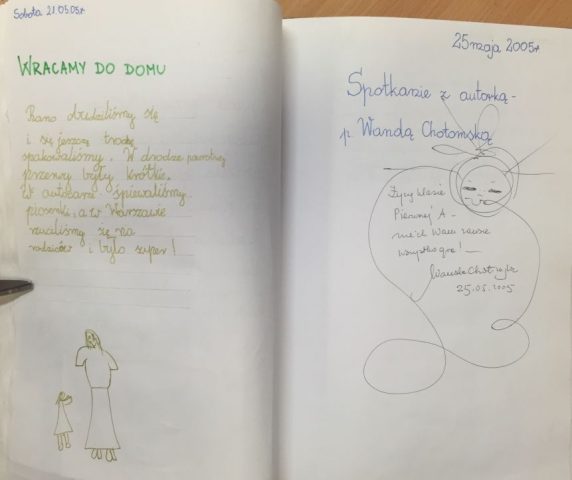 Sobota 21.05.05r
WRACAMY DO DOMU
Rano obudziliśmy się
i się jeszcze trochę
spakowaliśmy. W drodze powrotnej
przerwy były krótkie.
W autokarze śpiewaliśmy
piosenki, a w Warszawie
rzuciliśmy się na
rodziców i było super!
25 maja 2005r
Spotkanie z autorką -
p. Wandą Chotomską
Żyry klasie
Pierwszej A -
niech Wam zawsze
wszystko gra! -
Wanda Chotomska
25.05.2005